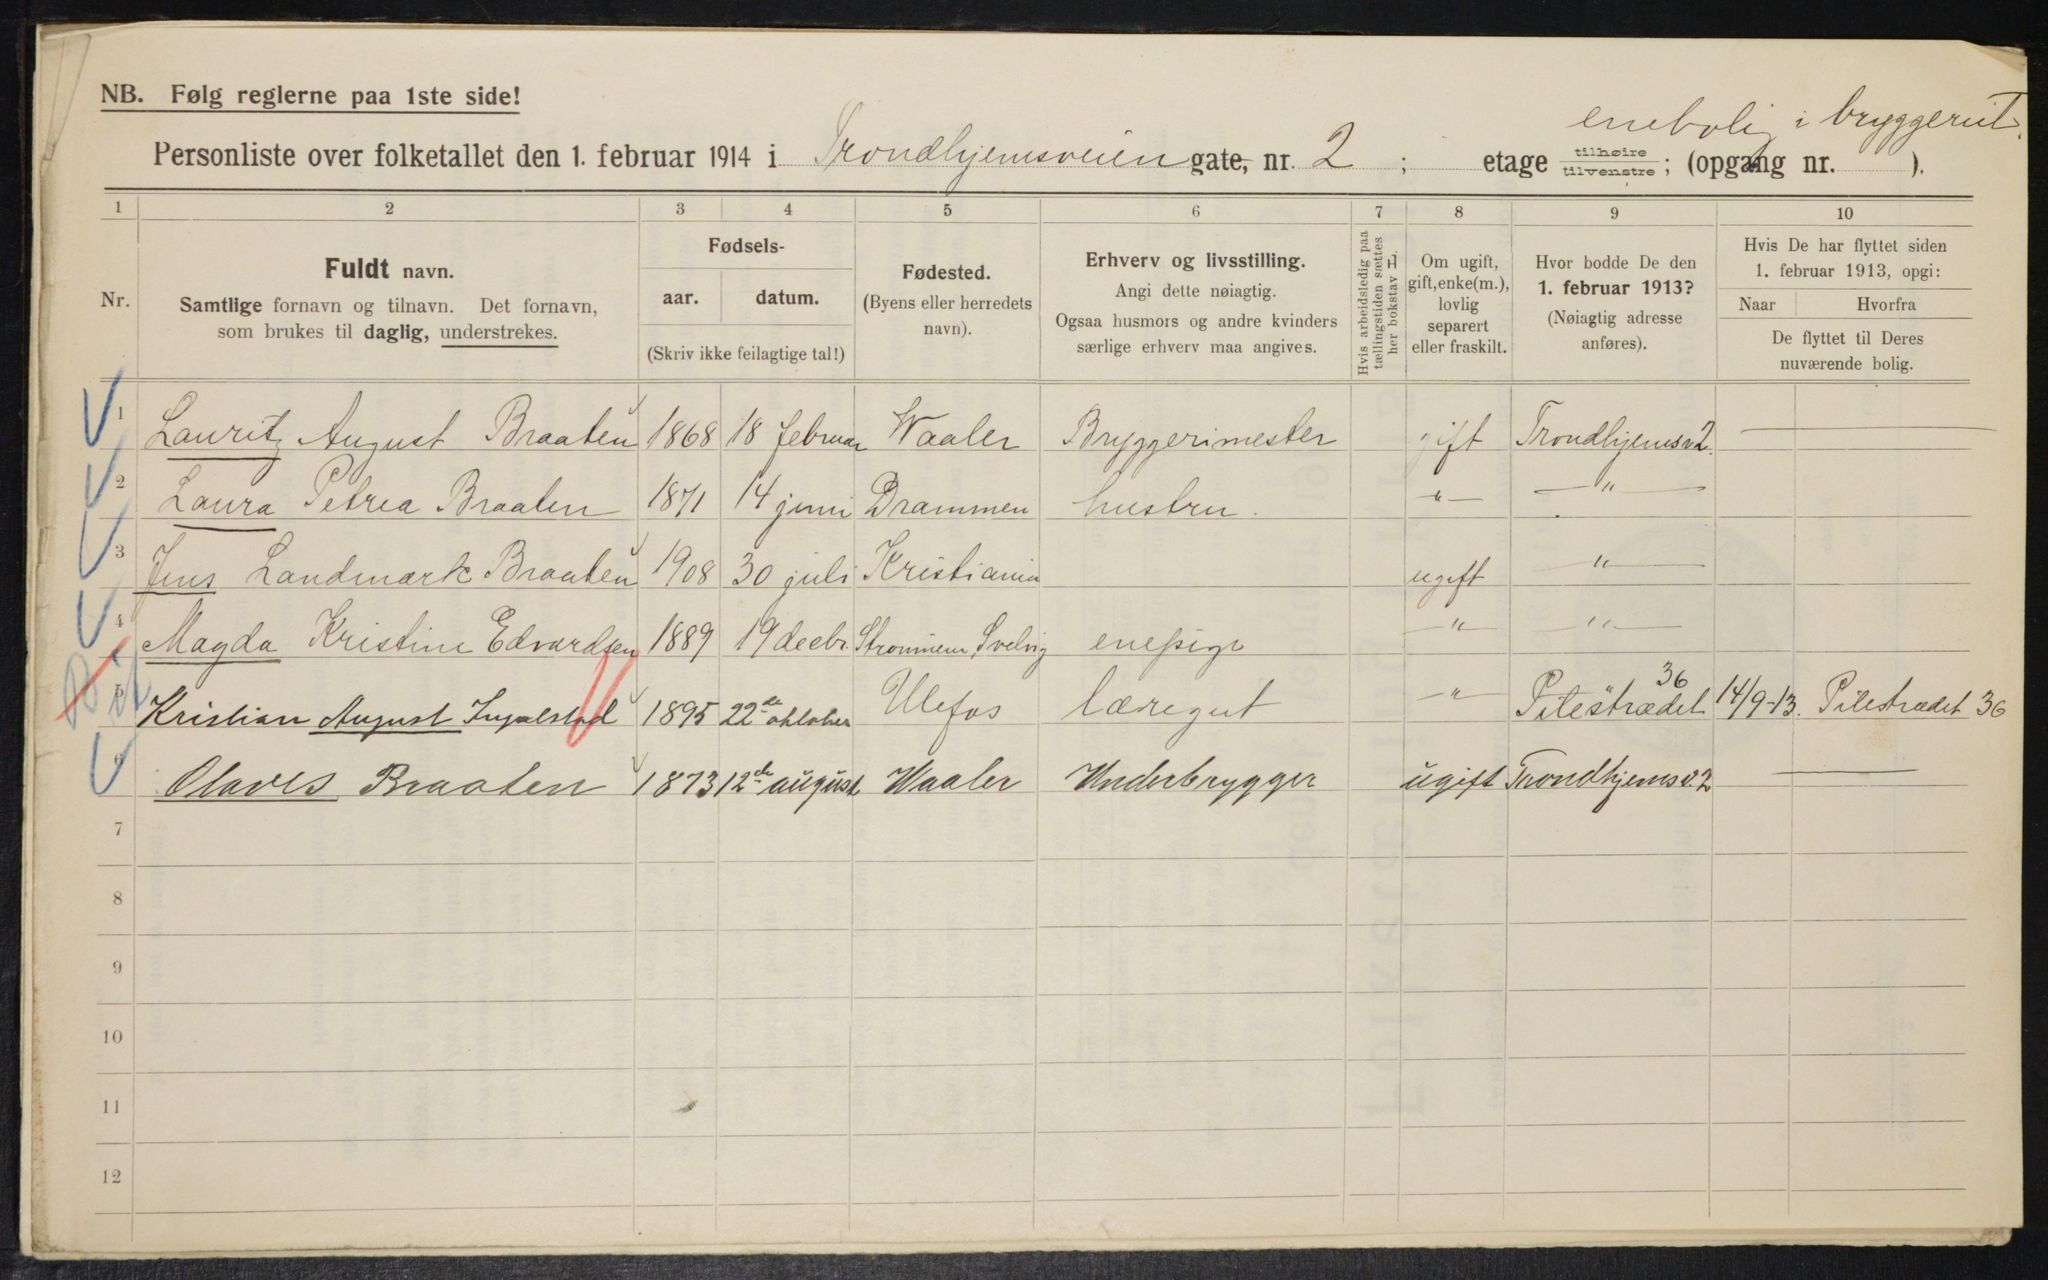 enebolig i bryggeriet.
NB. Følg reglerne paa 1ste side!
Personliste over folketallet den 1. februar 1914 i Trondhjemsveien gate, nr. 2 ; etage tilhøire tilvenstre ; (opgang nr. ).
1 2 3 4 5 6 7 8 9 10
Nr.
Fuldt navn.
Samtlige fornavn og tilnavn. Det fornavn,
som brukes til daglig, understrekes.
Fødsels-
aar. datum.
(Skriv ikke feilagtige tal!)
Fødested.
(Byens eller herredets
navn).
Erhverv og livsstilling.
Angi dette nøiagtig.
Ogsaa husmors og andre kvinders
særlige erhverv maa angives.
Hvis arbeidsledig paa
tællingstiden sættes
her bokstav L.
Om ugift,
gift, enke(m.),
lovlig
separert
eller fraskilt.
Hvor bodde De den
1. februar 1913?
(Nøiagtig adresse
anføres).
Hvis De har flyttet siden
1. februar 1913, opgi:
Naar Hvorfra
De flyttet til Deres
nuværende bolig.
1 Lauritz August Braaten 1868 18 februar Waaler Bryggerimester gift Trondhjemsv 2. —
2 Laura Petrea Braaten 1871 14 juni Drammen hustru. —"— —"—
3 Jens Landmark Braaten 1908 30 juli Kristiania ugift "
4 Magda Kristine Edvardsen 1889 19 decbr. Strømmen, Svelvig enepige —"— —"—
5 Kristian August 1895 22de oktober Ulefos læregut —"— Pilestrædet 36 14/9-13. Pilestrædet 36
6 Olaves Braaten 1873 12de august Waaler Underbrygger ugift Trondhjemsv. 2 —
7
8
9
10
11
12